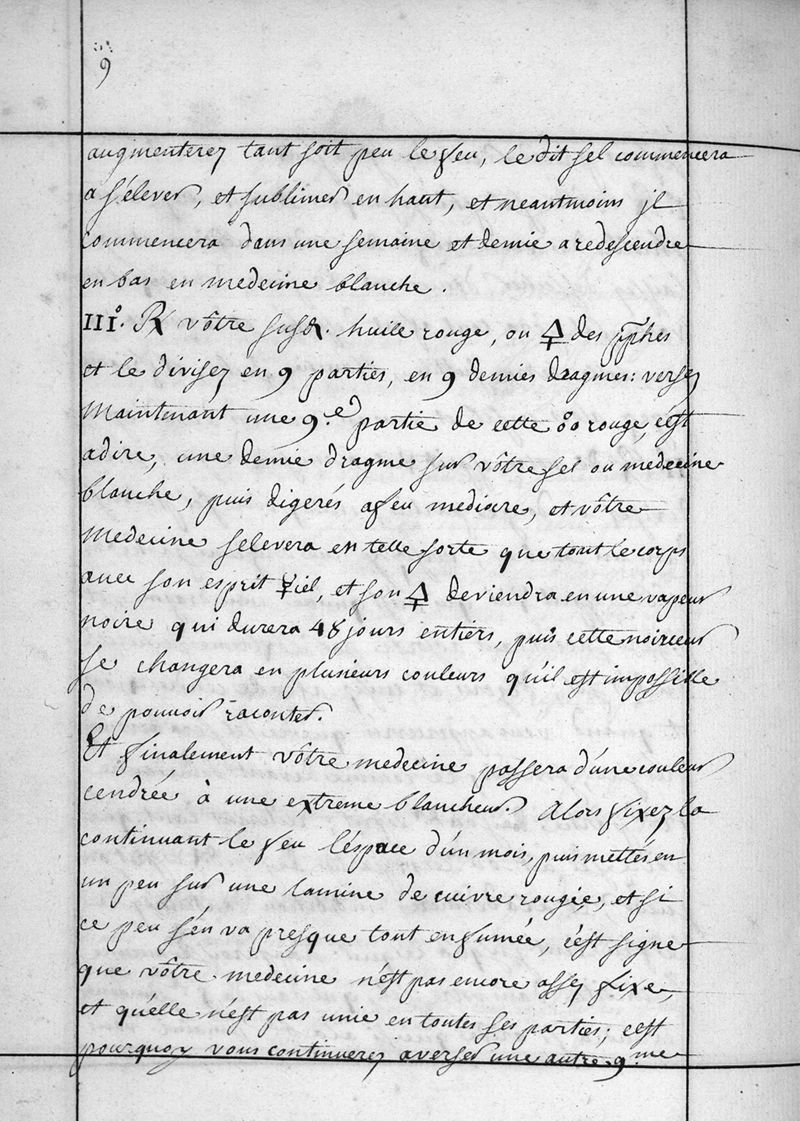 9
augmenterez tant soit peu le feu, le dit sel commencera
a s'élever, et sublimer en haut, et neantmoins jl
commencera dans une semaine et demie a redescendre
en bas en medecine blanche.
IIIº. ℞ vôtre susd. huile rouge, ou 🜍 des pphes
et le divisez en 9 parties, en 9 demies dragmes: versez
Maintenant une 9.e partie de cette rouge, c'est
adire, une demie dragme sur vôtre sel ou medecine
blanche, puis digerés a feu mediocre, et vôtre
Medecine selevera en telle sorte que tout le corps
avec son esprit ☿iel, et son 🜍 deviendra en une vapeur
noire qui durera 48 jours entiers, puis cette noirceur
se changera en plusieurs couleurs qu'il est impossible
de pouvoir raconter.
Et finalement vôtre medecine passera d'une couleur
cendrée à une extreme blancheur. Alors fixez la
continuant le feu l'éspace d'un mois, puis mettés en
un peu sur une lamine de cuivre rougie, et si
ce peu s'én va presque tout en fumée, c'est signe
que vôtre medecine n'est pas encore assez fixe,
et qu'élle n'est pas unie en toutes ses parties; c'est
pourquoy vous continuerez a verser une autre 9.me